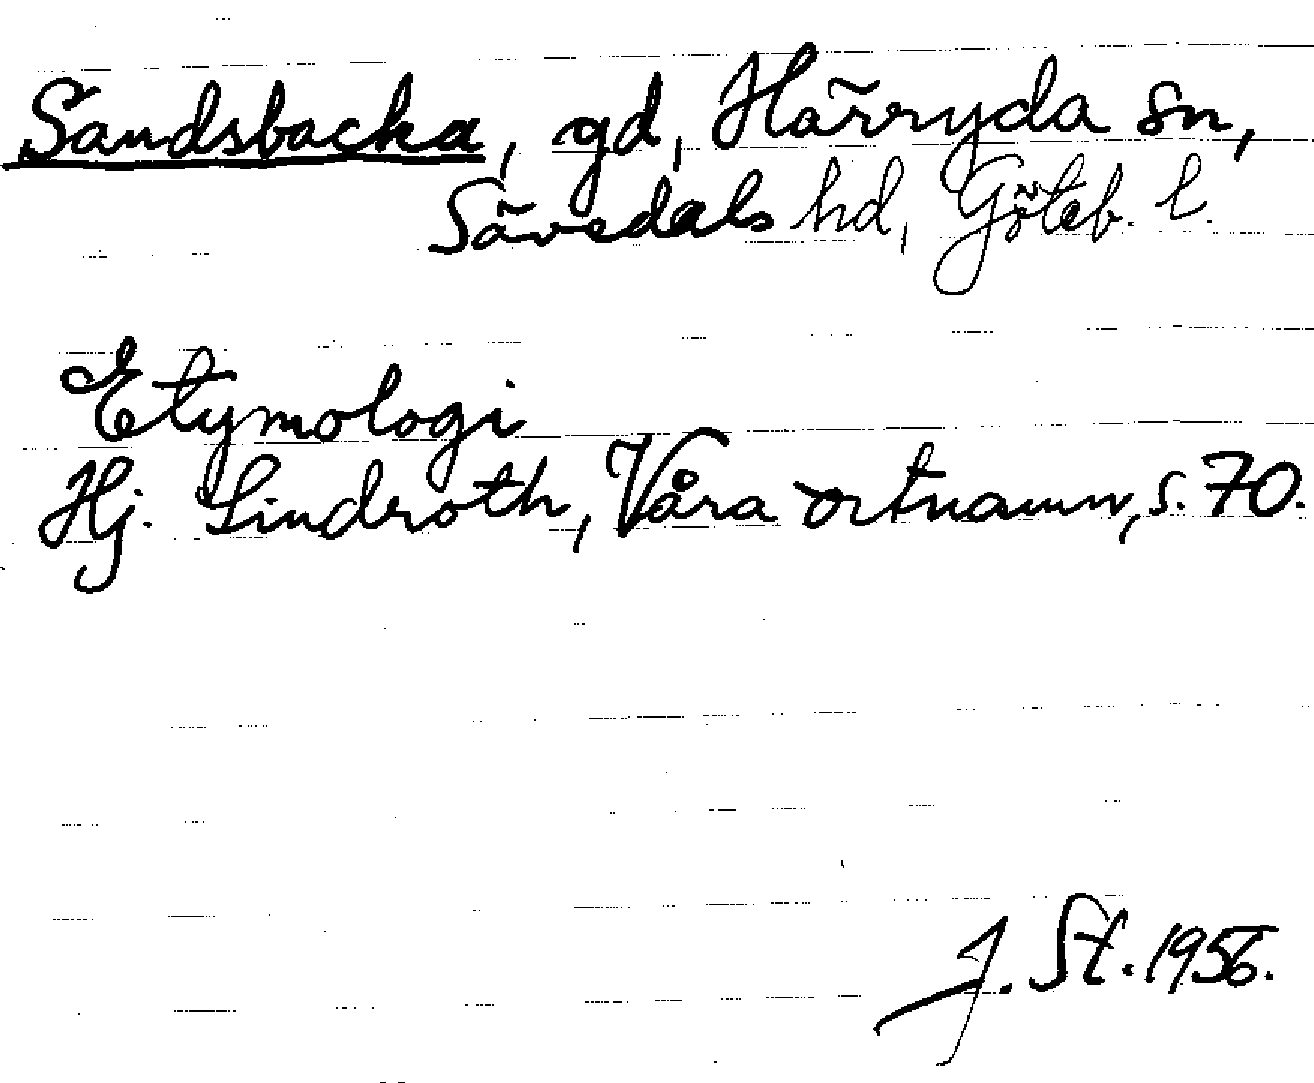 Sandsbacka, gd, Härryda sn,
Sävedals hd, Göteb. l.
Etymologi
Hj. Lindroth, Våra ortnamn, s. 70.
J. St. 1956.